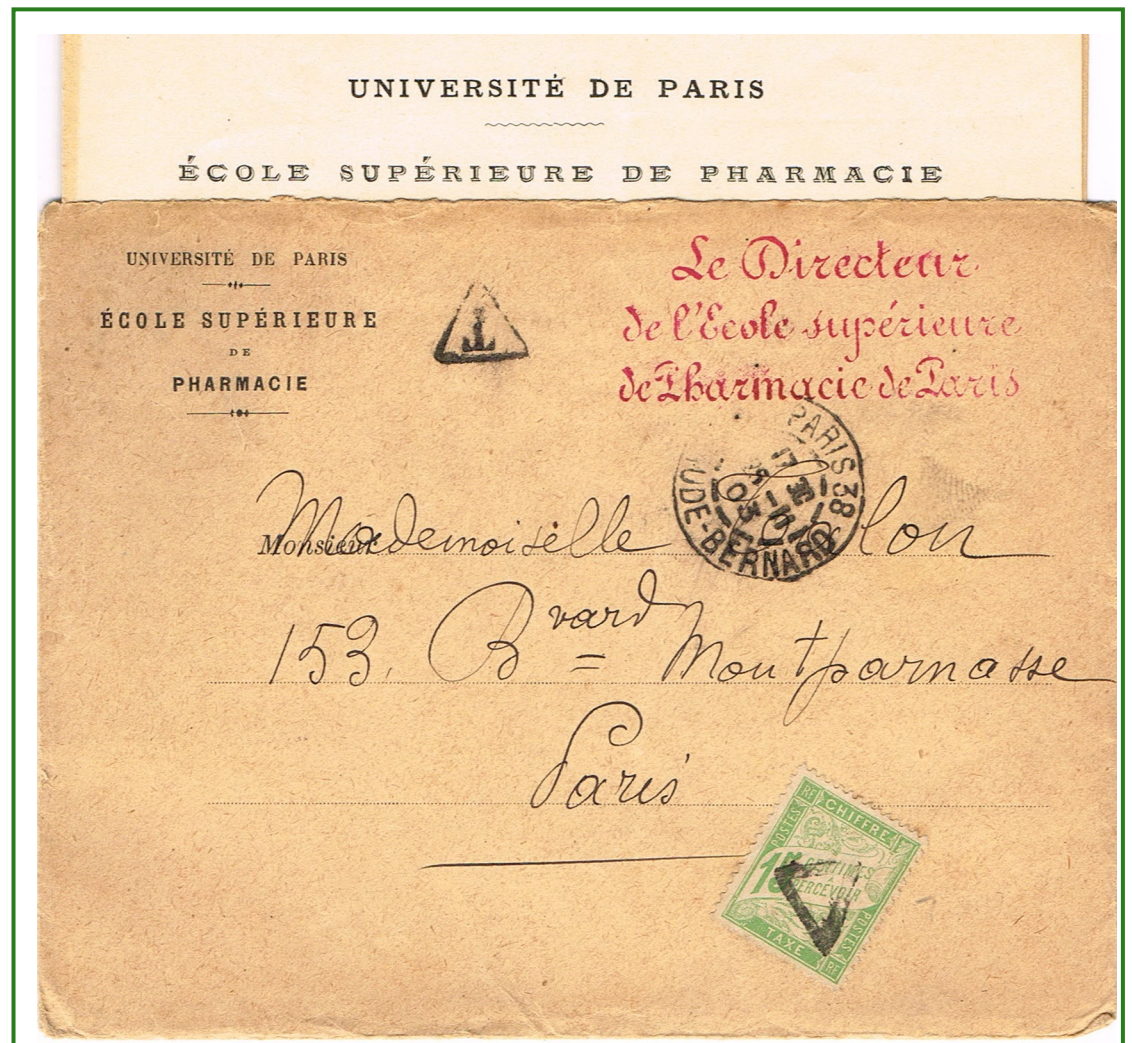 UNIVERSITÉ DE PARIS
ÉCOLE SUPÉRIEURE DE PHARMACIE
UNIVERSITÉ DE PARIS
ÉCOLE SUPÉRIEURE
DE
PHARMACIE
T
Le Directeur
de l'Ecole supérieure
de Pharmacie de Paris
PARIS 38
UDE-BERNARD
03
Monsieur
Mademoiselle
153, Bvard Montparnasse
Paris
RF CHIFFRE
POSTES
15 CENTIMES
À
PERCEVOIR
POSTES
TAXE RF